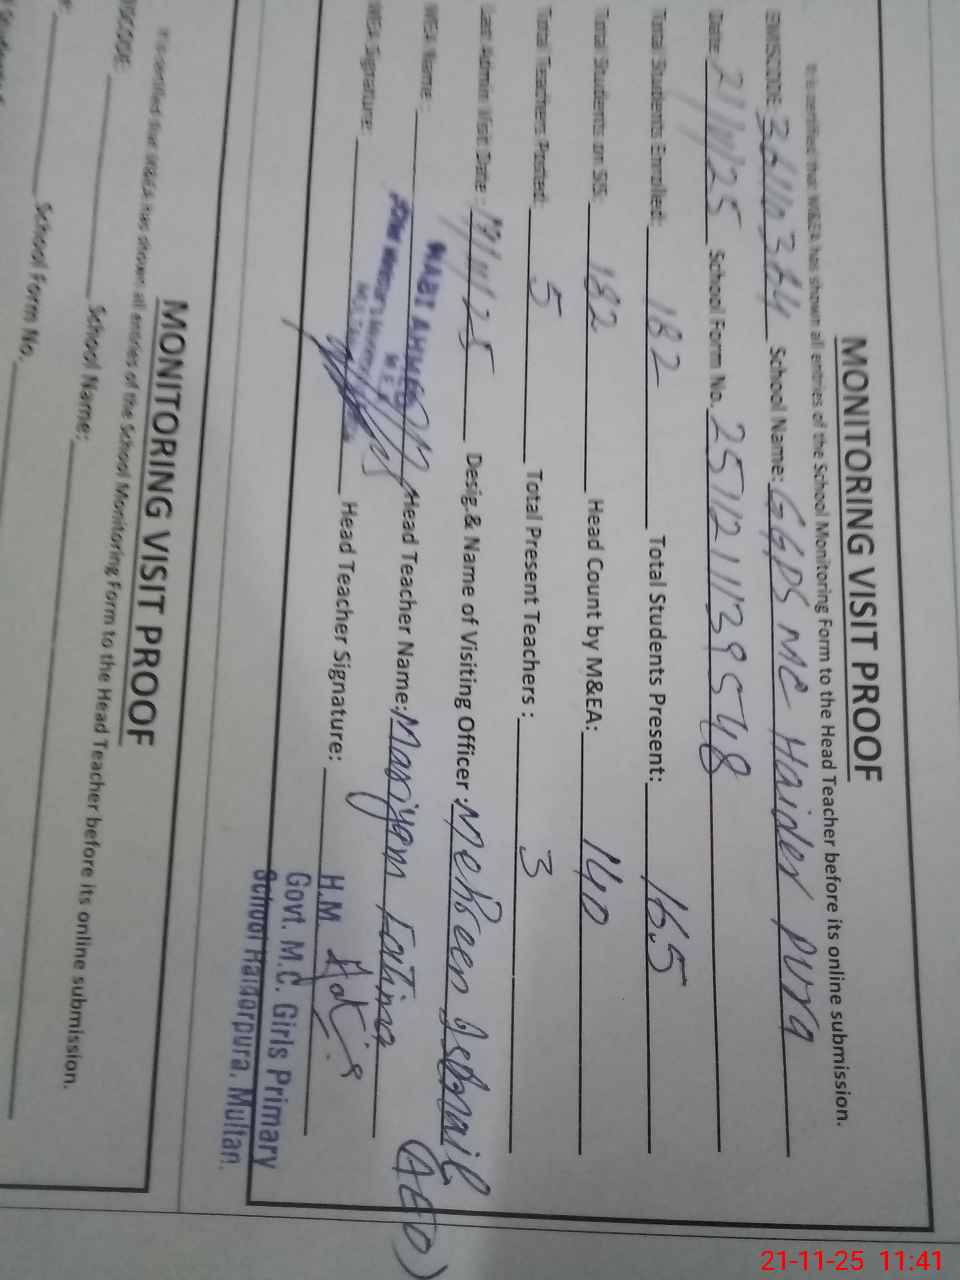 MONITORING VISIT PROOF
It is certified that M&EA has shown all entries of the School Monitoring Form to the Head Teacher before its online submission.
EMISCODE: School Name: GGPS MC Haider pura
Date: 21/11/25 School Form No. 251121139548
Total Students Enrolled: 182 Total Students Present: 165
Total Students on SIS: 182 Head Count by M&EA: 140
Total Teachers Posted: 5 Total Present Teachers : 3
Last Admin Visit Date : 19/11/25 Desig.& Name of Visiting Officer : Mehreen Ismail
(AEO)
MEA Name: Head Teacher Name: Maryam Fatima
MEA Signature: Head Teacher Signature:
H.M
Govt. M.C. Girls Primary
School Haidarpura. Multan.
MONITORING VISIT PROOF
It is certified that M&EA has shown all entries of the School Monitoring Form to the Head Teacher before its online submission.
School Name:
School Form No.
21-11-25 11:41